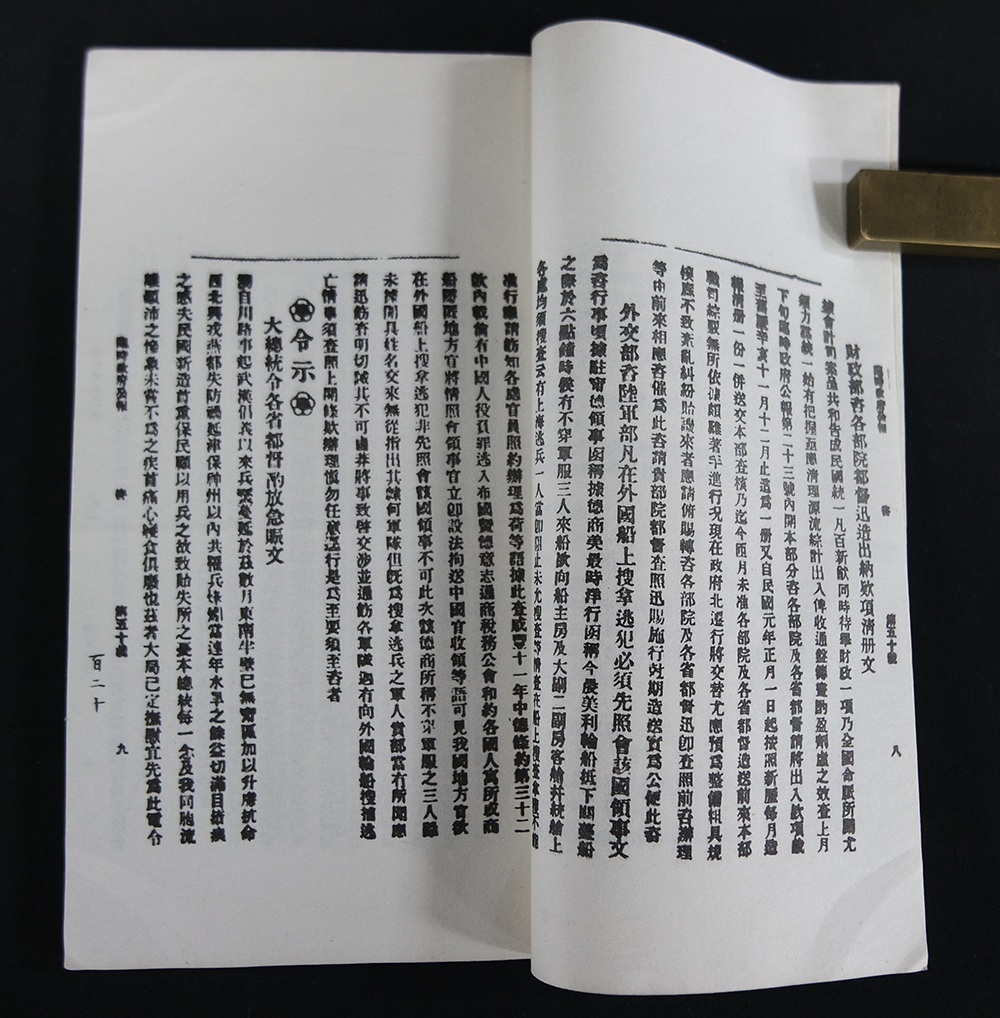 臨時政府公報　咨　第五十號　八
財政部咨各部院都督迅造出納欵項清册文
總會計司案呈共和告成民國統一凡百新猷同時待舉財政一項乃全國命脈所關尤
須力謀統一始有把握亟應清理源流綜計出入俾收通盤籌畫酌盈劑虛之效查上月
下旬臨時政府公報第二十三號內開本部分咨各部院及各省都督請將出入欵項截
至舊曆辛亥十一月十二月止造爲一册又自民國元年正月一日起按照新曆每月造
報清册一份一併送交本部查核乃迄今匝月未准各部院及各省都督造送前來本部
職司綜覈無所依據頗難著手進行況現在政府北遷行將交替尤應預爲整備粗具規
模庶不致紊亂糾紛貽譏來者應請俯賜轉咨各部院及各省都督迅卽查照前咨辦理
等由前來相應咨催爲此咨請貴部院都督查照迅賜施行尅期造送實爲公便此咨
外交部咨陸軍部凡在外國船上搜拿逃犯必須先照會該國領事文
爲咨行事頃據駐甯德領事函稱據德商美最時洋行函稱今晨美利輪船抵下關躉船
之際於六點鐘時候有不穿軍服三人來船欲向船主房及大副二副房客艙并統艙上
各處均須搜查云有上海逃兵一人當卽阻止未允搜查等情查在船上搜查
准行應請飭知各處官員照約辦理爲荷等語據此查咸豐十一年中德條約第三十三
欵內載倘有中國人役負罪逃入布國曁德意志通商稅務公會和約各國人寓所或商
船隱匿地方官將情照會領事官立卽設法拘送中國官收領等語可見我國地方官欲
在外國船上搜拿逃犯非先照會該國領事不可此次該德商所稱不穿軍服之三人雖
未據開具姓名交來無從指出其隸何軍隊但旣爲搜拿逃兵之軍人貴部當有所聞應
請迅飭查明切誡其不可鹵莽將事致啓交涉並通飭各軍隊遇有向外國輪船搜捕逃
亡情事須查照上開條欵辦理愼勿任意逕行是爲至要須至咨者
令示
大總統令各省都督酌放急賑文
溯自川路事起武漢倡義以來兵燹蔓延於茲數月東南半壁已無甯區加以升庚抗命
西北興戎燕都失防禍延津保神州以內共罹兵烽劉當連年水旱之餘益切滿目瘡痍
之感夫民國新造首重保民顧以用兵之故致貽失所之憂本總統每一念及我同胞流
離顛沛之慘象未嘗不爲之疾首痛心寢食俱廢也茲者大局已定撫慰宜先爲此電令
臨時政府公報　咨　第五十號　九
百二十